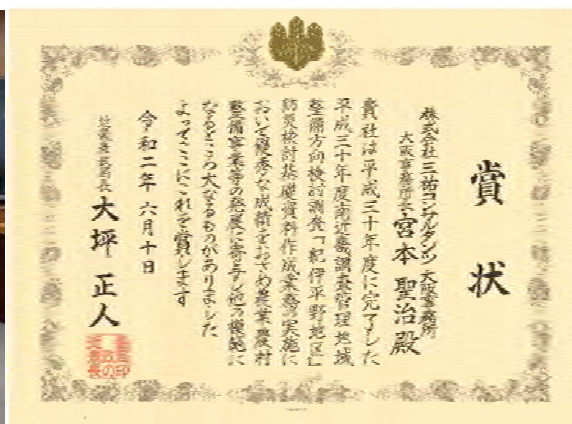 賞状
株式会社三祐コンサルタンツ 大阪事務所
大阪事務所長 宮本 聖治 殿
貴社は平成三十年度に完了した
平成三十年度南近畿調査管理地域
整備方向検討調査「紀伊平野地区」
防災検討基礎資料作成業務の実施に
おいて優秀な成績をおさめ農業農村
整備事業等の発展に寄与し他の模範に
なるところ大なるものがありました
よってここにこれを賞します
令和二年 六月十日
近畿農政局長 大坪 正人